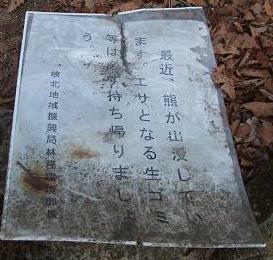 最近、熊が出没してい
ます。エサとなる生ゴミ
等は必ず持ち帰りましょ
う。
峡北地域振興局林務 部長